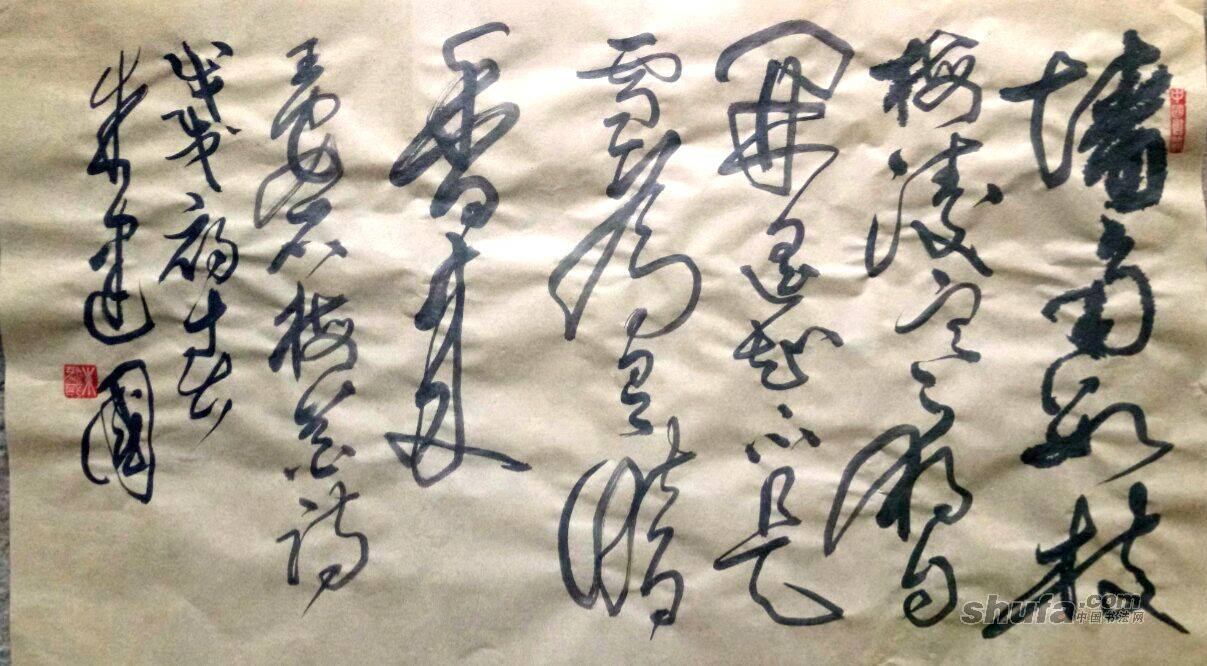 墙角数枝
梅凌寒獨自
開遥知不是
雪為有暗
香来
王安石梅花诗
戊戌初春
朱建國
shufa.com
中国书法网